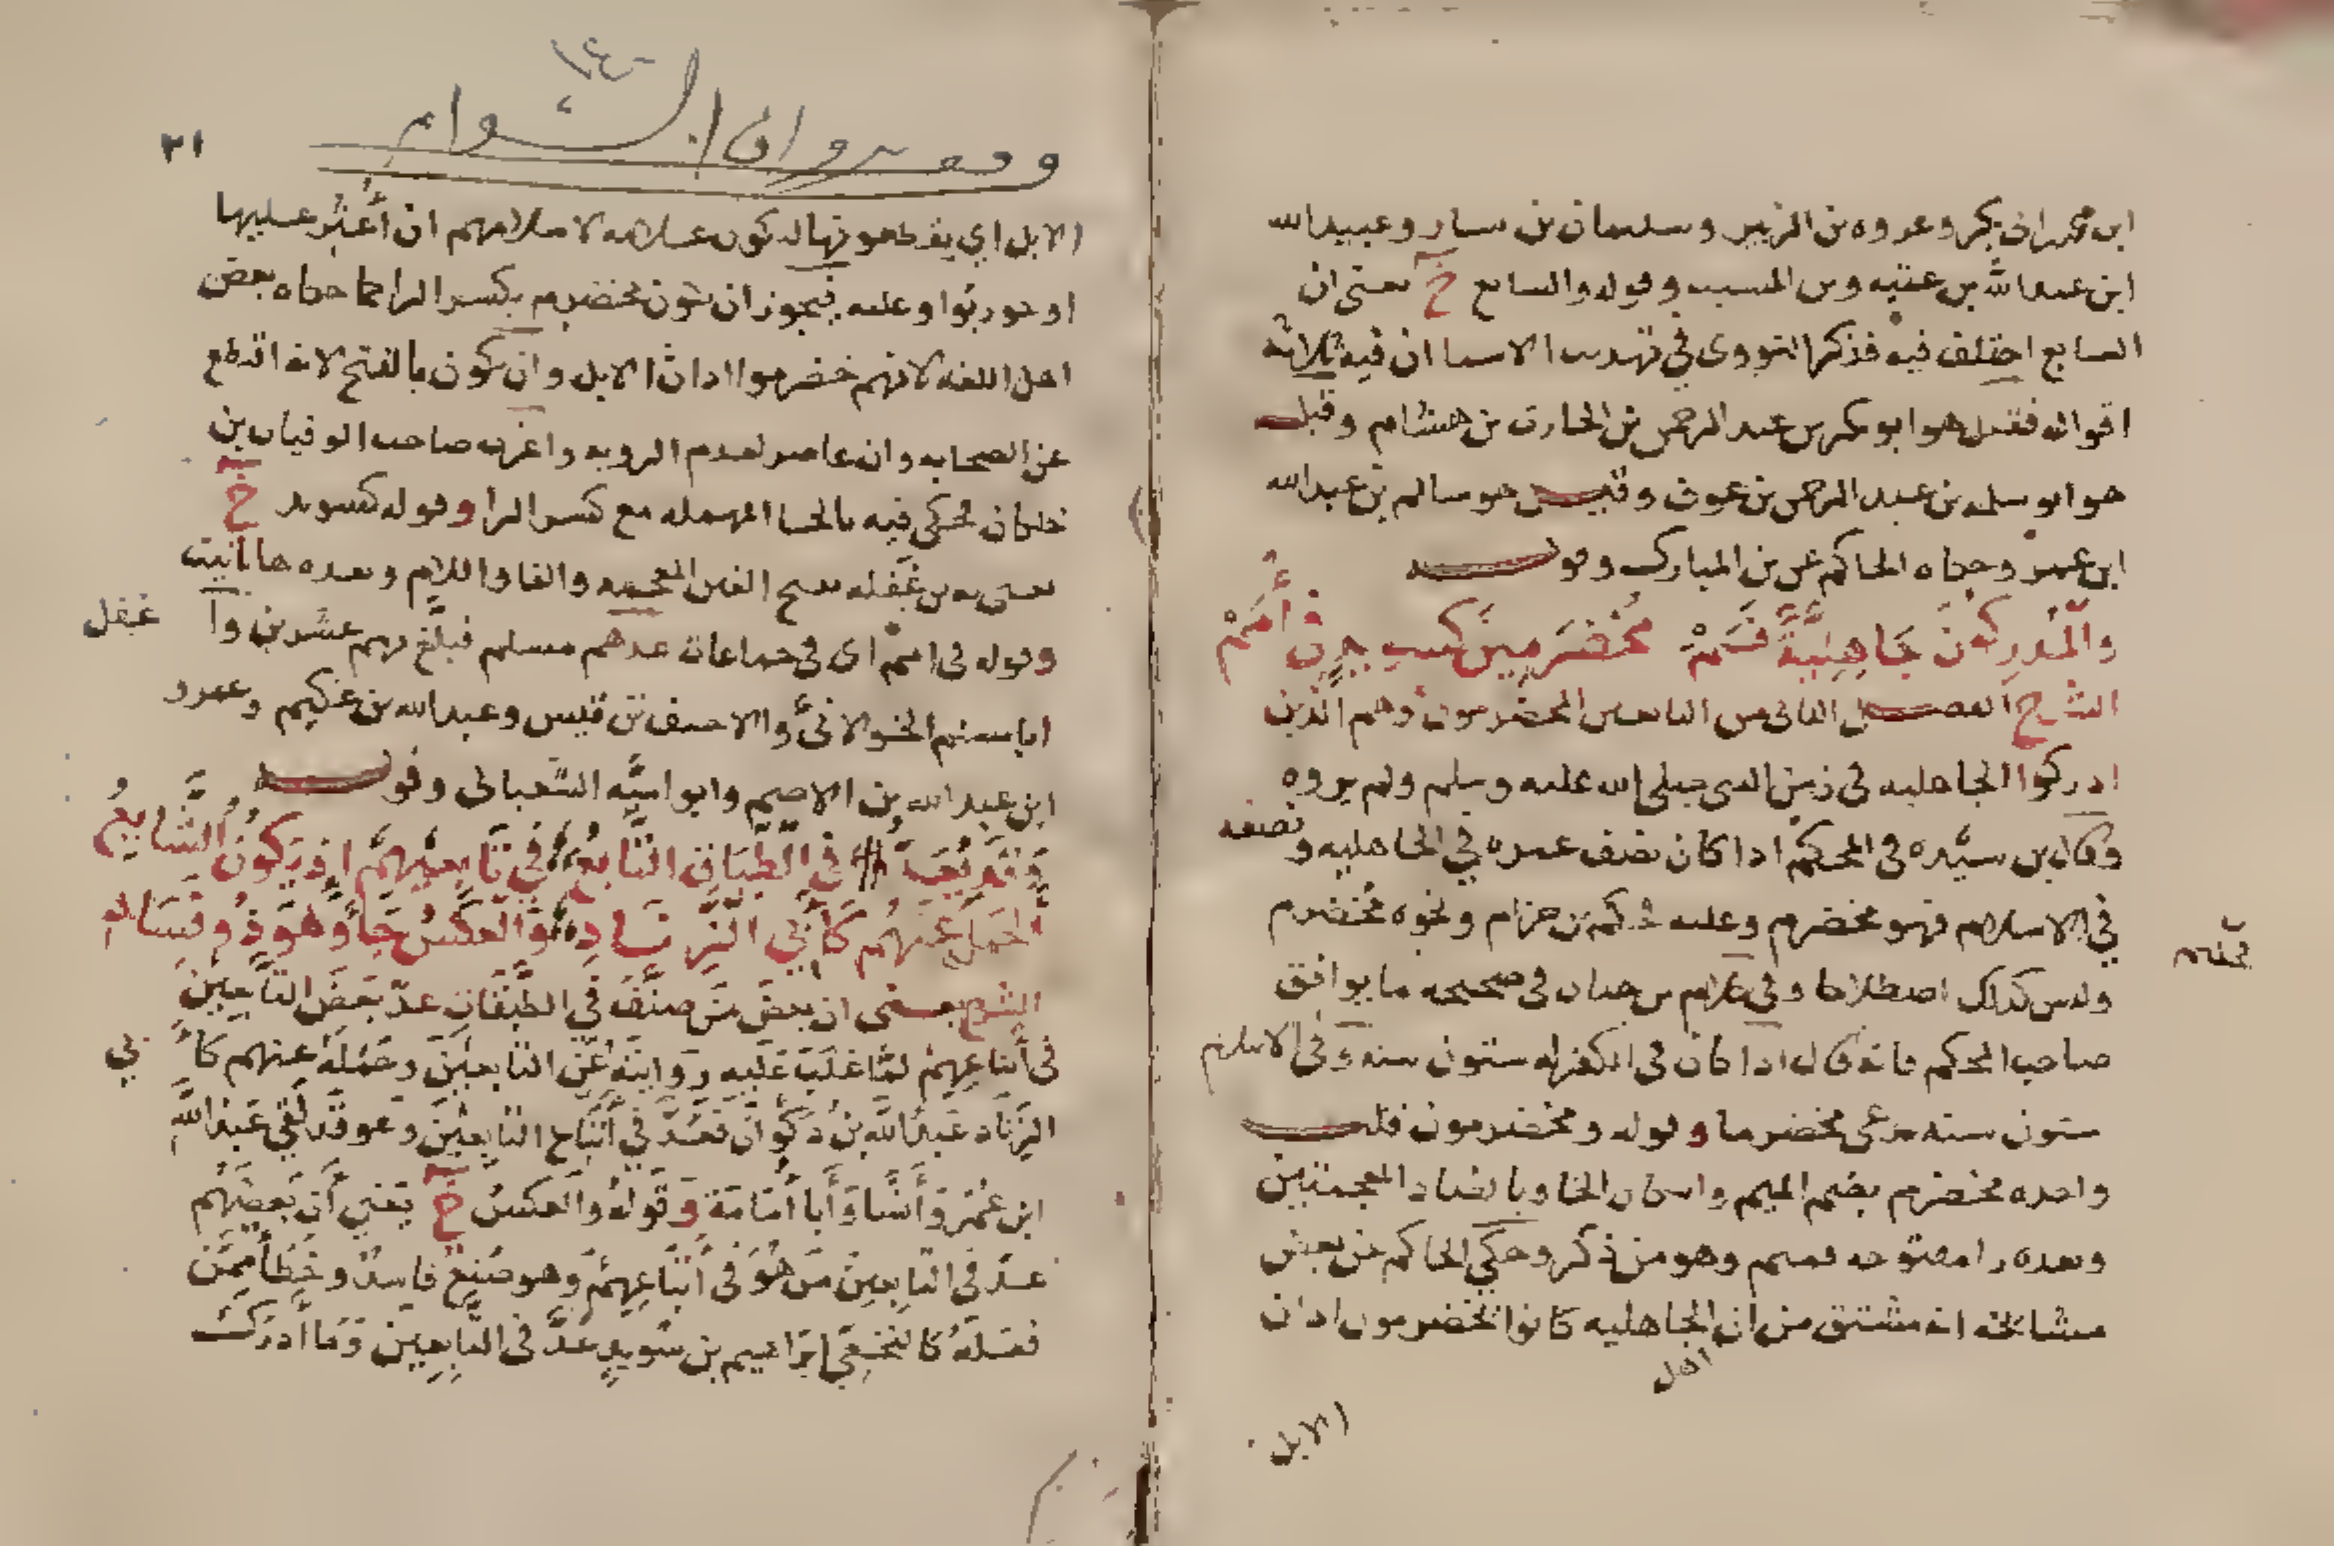 ابن محمد ابى بكر وعروه بن الزبير وسلىمان بن سار وعبيدالله
ابن عبدالله بن عتبه وبن المسيب وقوله والسابع خ يعنى ان
السابع اختلف فيه فذكر النووى في تهديب الاسما ان فيه ثلاثة
اقوال فقيل هو ابو بكر بن عبد الرحمن بن الحارث بن هشام وقيل
هو ابو سلمه بن عبد الرحمن بن عوف وقيل هو سالم بن عبدالله
ابن عمر وحكاه الحاكم عن بن المبارك وقوله
والمُدرِكُونَ جَاهِليَّةً فَسَمْ مُخضرَمِينَ كسويدٍ في أُمَمْ
الشرح الفصل الثانى من التابعين المخضرمون وهم الذين
ادركوا الجاهليه فى زمن النبى صلى الله عليه وسلم ولم يروه
وقال بن سيده فى المحكم اذا كان نصف عمره في الجاهليه ونصفه
في الاسلام فهو مخضرم وعليه فحكيم بن حزام ونحوه مخضرم
وليس كذلك اصطلاحا وفي كلام بن حبان فى صحيحه ما يوافق
صاحب المحكم فانه قال اذا كان فى الكفر له ستون سنه وفى الاسلام
ستون سنه يدعى مخضرما وقوله ومخضرمون قلت
واحده مخضرم بضم الميم واسكان الخا وبالضاد المعجمتين
وبعده را مفتوحه فميم وهو من ذكر وحكي الحاكم عن بعض
مشائخه انه مشتق من ان الجاهليه كانوا يخضرمون اذان
اهل
الابل
٢١
الابل اي يقطعونها لتكون علامه لاسلامهم ان أُغِيْر عليها
او حوربوا وعليه فيجوز ان يكون مخضرم بكسر الرا كما حكاه بعض
اهل اللغه لانهم خضرموا اذان الابل وان يكون بالفتح لانه اقتطع
عن الصحابه وان عاصر لعدم الرويه واغرب صاحب الوفيات بن
خلكان فحكى فيه بالحا المهمله مع كسر الرا وقوله كسويد خ
يعنى به بن غَفَله بفتح الغين المعجمه والفا واللام وبعده ها تانيث
غفل
وقوله فى امم اى فى جماعات عدهم مسلم فبلّغ بهم عشرين و
ابا مسلم الخولانىُّ والاحنف بن قيس وعبدالله بن عُكيم وعمرو
ابن عبد الله بن الاصم وابو اميَّه الشَّعبانى وقوله
وَقَدْ يُعَدُّ فِي الطِّبَاقِ التَّابِعُ في تَابِعيْهِمُ اِذ يَكُونُ الشَّايعُ
الحَمْلَ عَنْهُم كَأَبِي الزِّنَادِ وَالْعَكْسُ جَاءَ وَهْوَ ذُو فَسَادِ
الشرح يعنى ان بعضَ مَن صنَّفَ فِي الطبَقاتِ عدّ بعَضَ التَّابِعِيْنَ
فى أَتباعِهِمْ لمَّا غلَبَ عَليه رِوَايتَهُ عَنِ التابعِيْنَ وحَمْلَهُ عنهم كأَبي
الزِّنادِ عَبدُاللهِ بنُ ذكوَانَ فَعُدَّ فِي أتبَاعِ التابِعِيْنَ وَهو قَدْ لَقِي عَبدَاللهِ
ابن عُمَرَ وَأَنَسًا وَأَبا أُمَامَة وَقَوْلُهُ وَالعكسُ خ يَعْنِي أَن بَعضَهُم
عَدَّ في التابِعينَ مَن هُوَ فى أَتبَاعِهِمْ وَهو صَنيعٌ فاسِدٌ وخَطَأٌ مِمَّنْ
فعَلَهُ كالنَّخَعِي إبرَاهيم بن سُويدٍ عُدَّ فى التَّابِعِيْنَ وَمَا أَدرَكَ